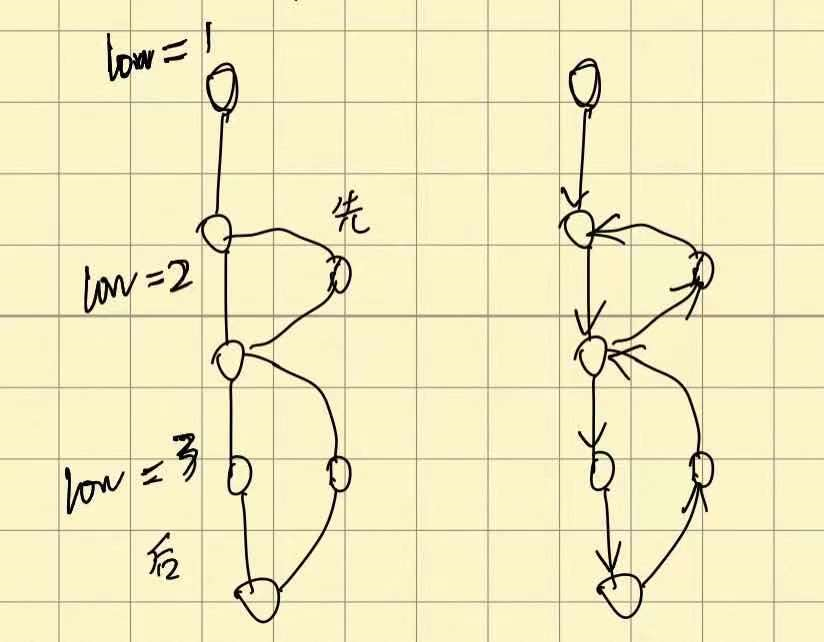 low = 1
先
low = 2
low = 3
后